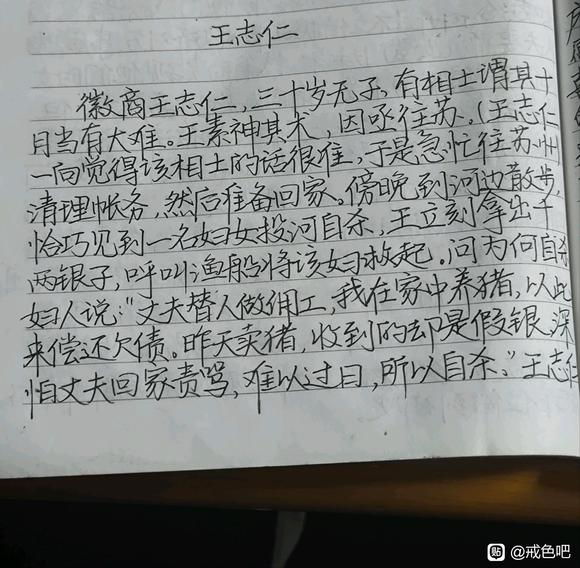 王志仁
徽商王志仁，三十岁无子，有相士谓其十
月当有大难。王素神其术，因亟往苏，（王志仁
一向觉得该相士的话很准，于是急忙往苏州
清理帐务，然后准备回家。傍晚到河边散步，
恰巧见到一名妇女投河自杀，王立刻拿出十
两银子，呼叫渔船将该妇救起。问为何自杀
妇人说："丈夫替人做佣工，我在家中养猪，以此
来偿还欠债。昨天卖猪，收到的却是假银，深
怕丈夫回家责骂，难以过日，所以自杀。"王志仁
贴 @戒色吧